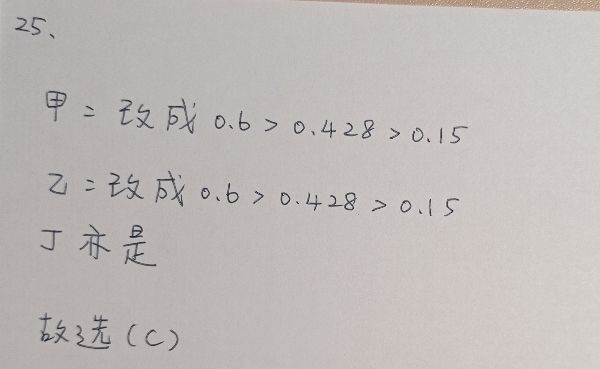 25、
甲=改成 0.6 > 0.428 > 0.15
乙=改成 0.6 > 0.428 > 0.15
丁亦是
故选(C)